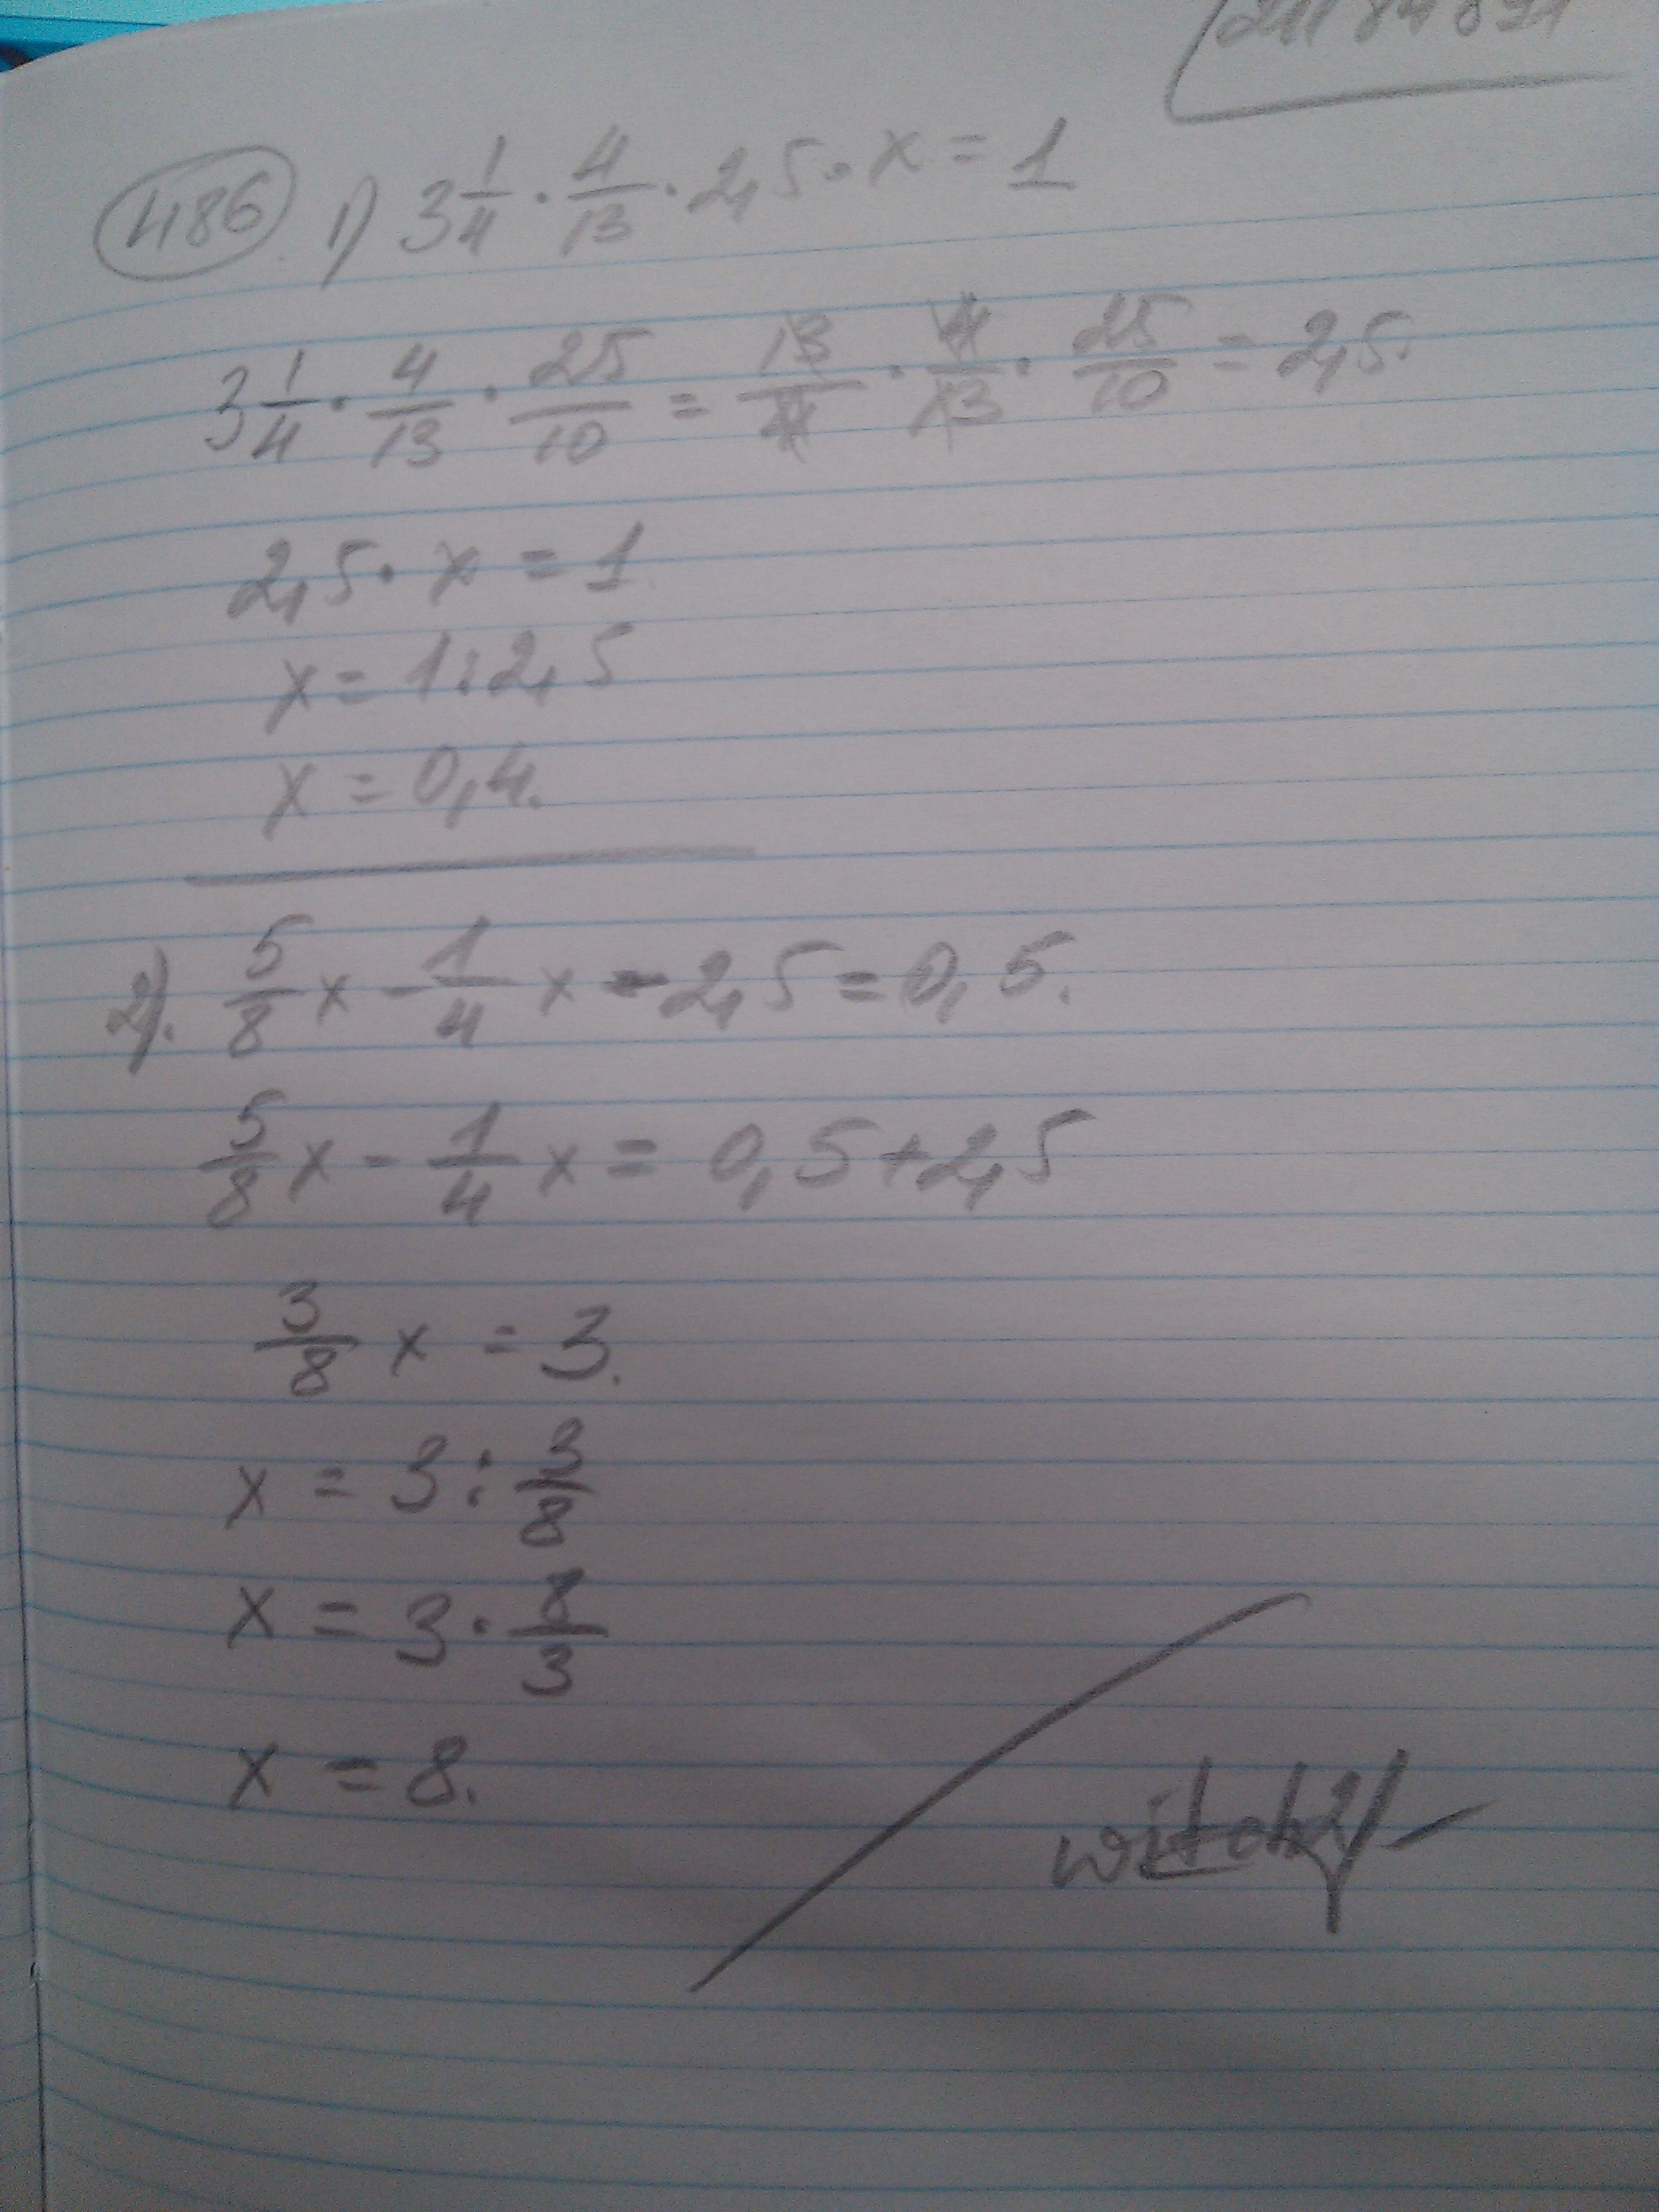 486. 1) 3 1/4 · 4/13 · 2,5 · x = 1
3 1/4 · 4/13 · 25/10 = 13/4 · 4/13 · 25/10 = 2,5.
2,5 · x = 1
x = 1 : 2,5
x = 0,4.
2). 5/8 x - 1/4 x - 2,5 = 0,5.
5/8 x - 1/4 x = 0,5 + 2,5
3/8 x = 3.
x = 3 : 3/8
x = 3 · 8/3
x = 8.